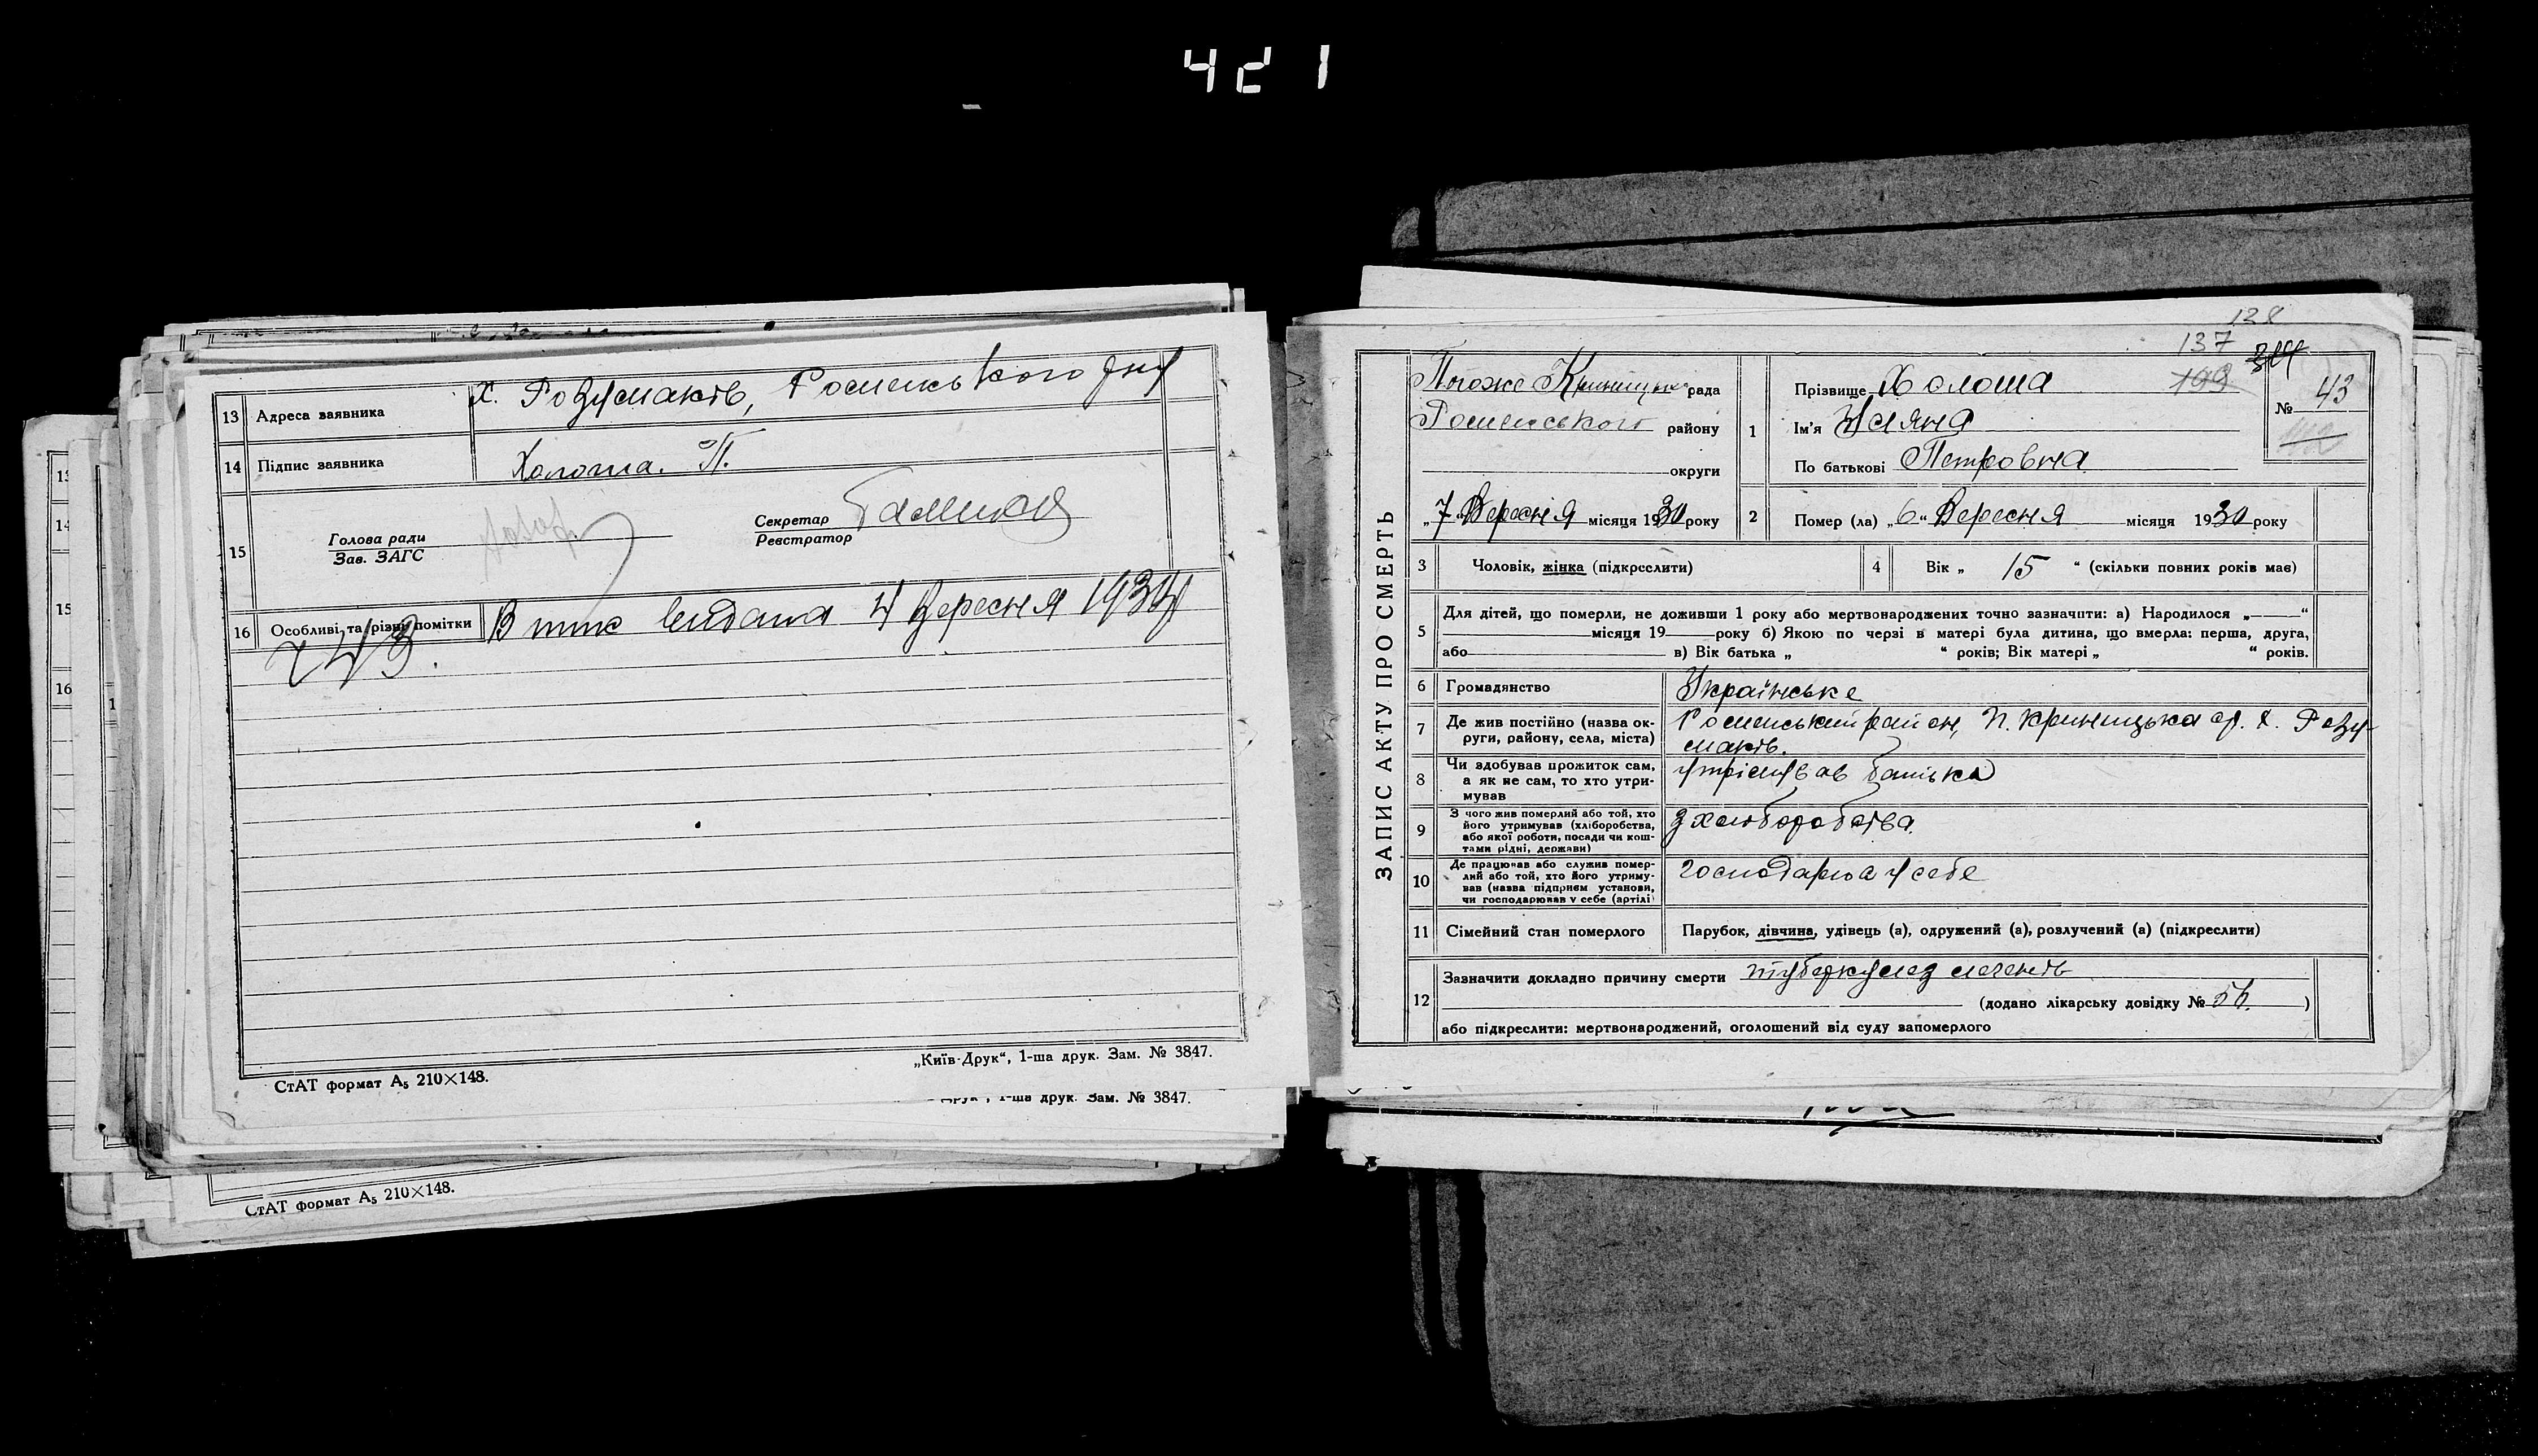 421
13 Адреса заявника Х. Розумаків, Роменського р-ну
14 Підпис заявника Холоша. П.
15 Голова ради
Зав. ЗАГС
Секретар
Реєстратор
16 Особливі та різні помітки Виписі видана 4 Вересня 1934
з 43.
СтАТ формат А5 210×148.
„Київ-Друк“, 1-ша друк. Зам. № 3847.
1-ша друк. Зам. № 3847.
СтАТ формат А5 210×148.
13
14
15
16
128
137
199
ЗАПИС АКТУ ПРО СМЕРТЬ
Пложе Криницька рада
Роменського району
округи
„7“ Вересня місяця 1930 року
1 Прізвище Холоша
Ім'я Уляна
По батькові Петровна
№ 43
2 Помер (ла) „6“ Вересня місяця 1930 року
3 Чоловік, жінка (підкреслити)
4 Вік „ 15 “ (скільки повних років має)
5 Для дітей, що померли, не доживши 1 року або мертвонароджених точно зазначити: а) Народилося „ “
місяця 19 року б) Якою по черзі в матері була дитина, що вмерла: перша, друга,
або в) Вік батька „ “ років; Вік матері „ “ років.
6 Громадянство Українське
7 Де жив постійно (назва округи, району, села, міста) Роменський район, П. Криницька ср. х. Розу-
маків.
8 Чи здобував прожиток сам, а як не сам, то хто утримував утрімував батько
9 З чого жив померлий або той, хто його утримував (хліборобства, або якої роботи, посади чи коштами рідні, держави) з хлібороботва.
10 Де працював або служив померлий або той, хто його утримував (назва підприєм установи, чи господарював у себе (артілі) господарюа у себе
11 Сімейний стан померлого Парубок, дівчина, удівець (а), одружений (а), розлучений (а) (підкреслити)
12 Зазначити докладно причину смерти туберкульоз легенів
(додано лікарську довідку № 56. )
або підкреслити: мертвонароджений, оголошений від суду запомерлого